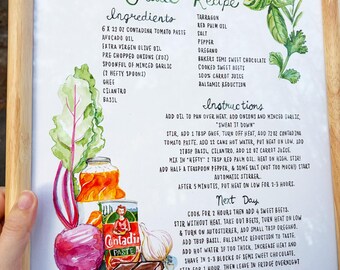 Recipe
Ingredients
6 x 12 oz Contadina Tomato Paste
Avocado oil
Extra virgin olive oil
Pre chopped onions (8oz)
Spoonful of minced garlic
(4 hefty spoons)
Ghee
Cilantro
Basil
Tarragon
Red palm oil
Salt
Pepper
Oregano
Bakers semi sweet chocolate
Cooked sweet beets
100% carrot juice
Balsamic reduction
Instructions
Add oil to pan over heat. Add onions and minced garlic,
"sweat it down"
Stir, add 1 tbsp ghee. Turn off heat, add 12 oz Contadina
tomato paste. Add 12 cans hot water, put heat on low. Add
tbsp basil, cilantro. Add 12 oz carrot juice.
Mix in "hefty" 2 tbsp red palm oil. Heat on high, stir!
Add half a teaspoon pepper, & some salt (not too much) start
automatic stirrer.
After 5 minutes, put heat on low for 2-3 hours.
Next Day
Cook for 2 hours then add 4 sweet beets.
Stir without heat. Take out beets, turn heat on low
& turn on autostirrer, add small tbsp oregano.
Add tbsp basil, balsamic reduction to taste.
Add hot water if too thick. Increase heat and
shave in 2-3 blocks of semi sweet chocolate.
Stir for 1 hour, then leave in fridge overnight
Contadina
PASTE